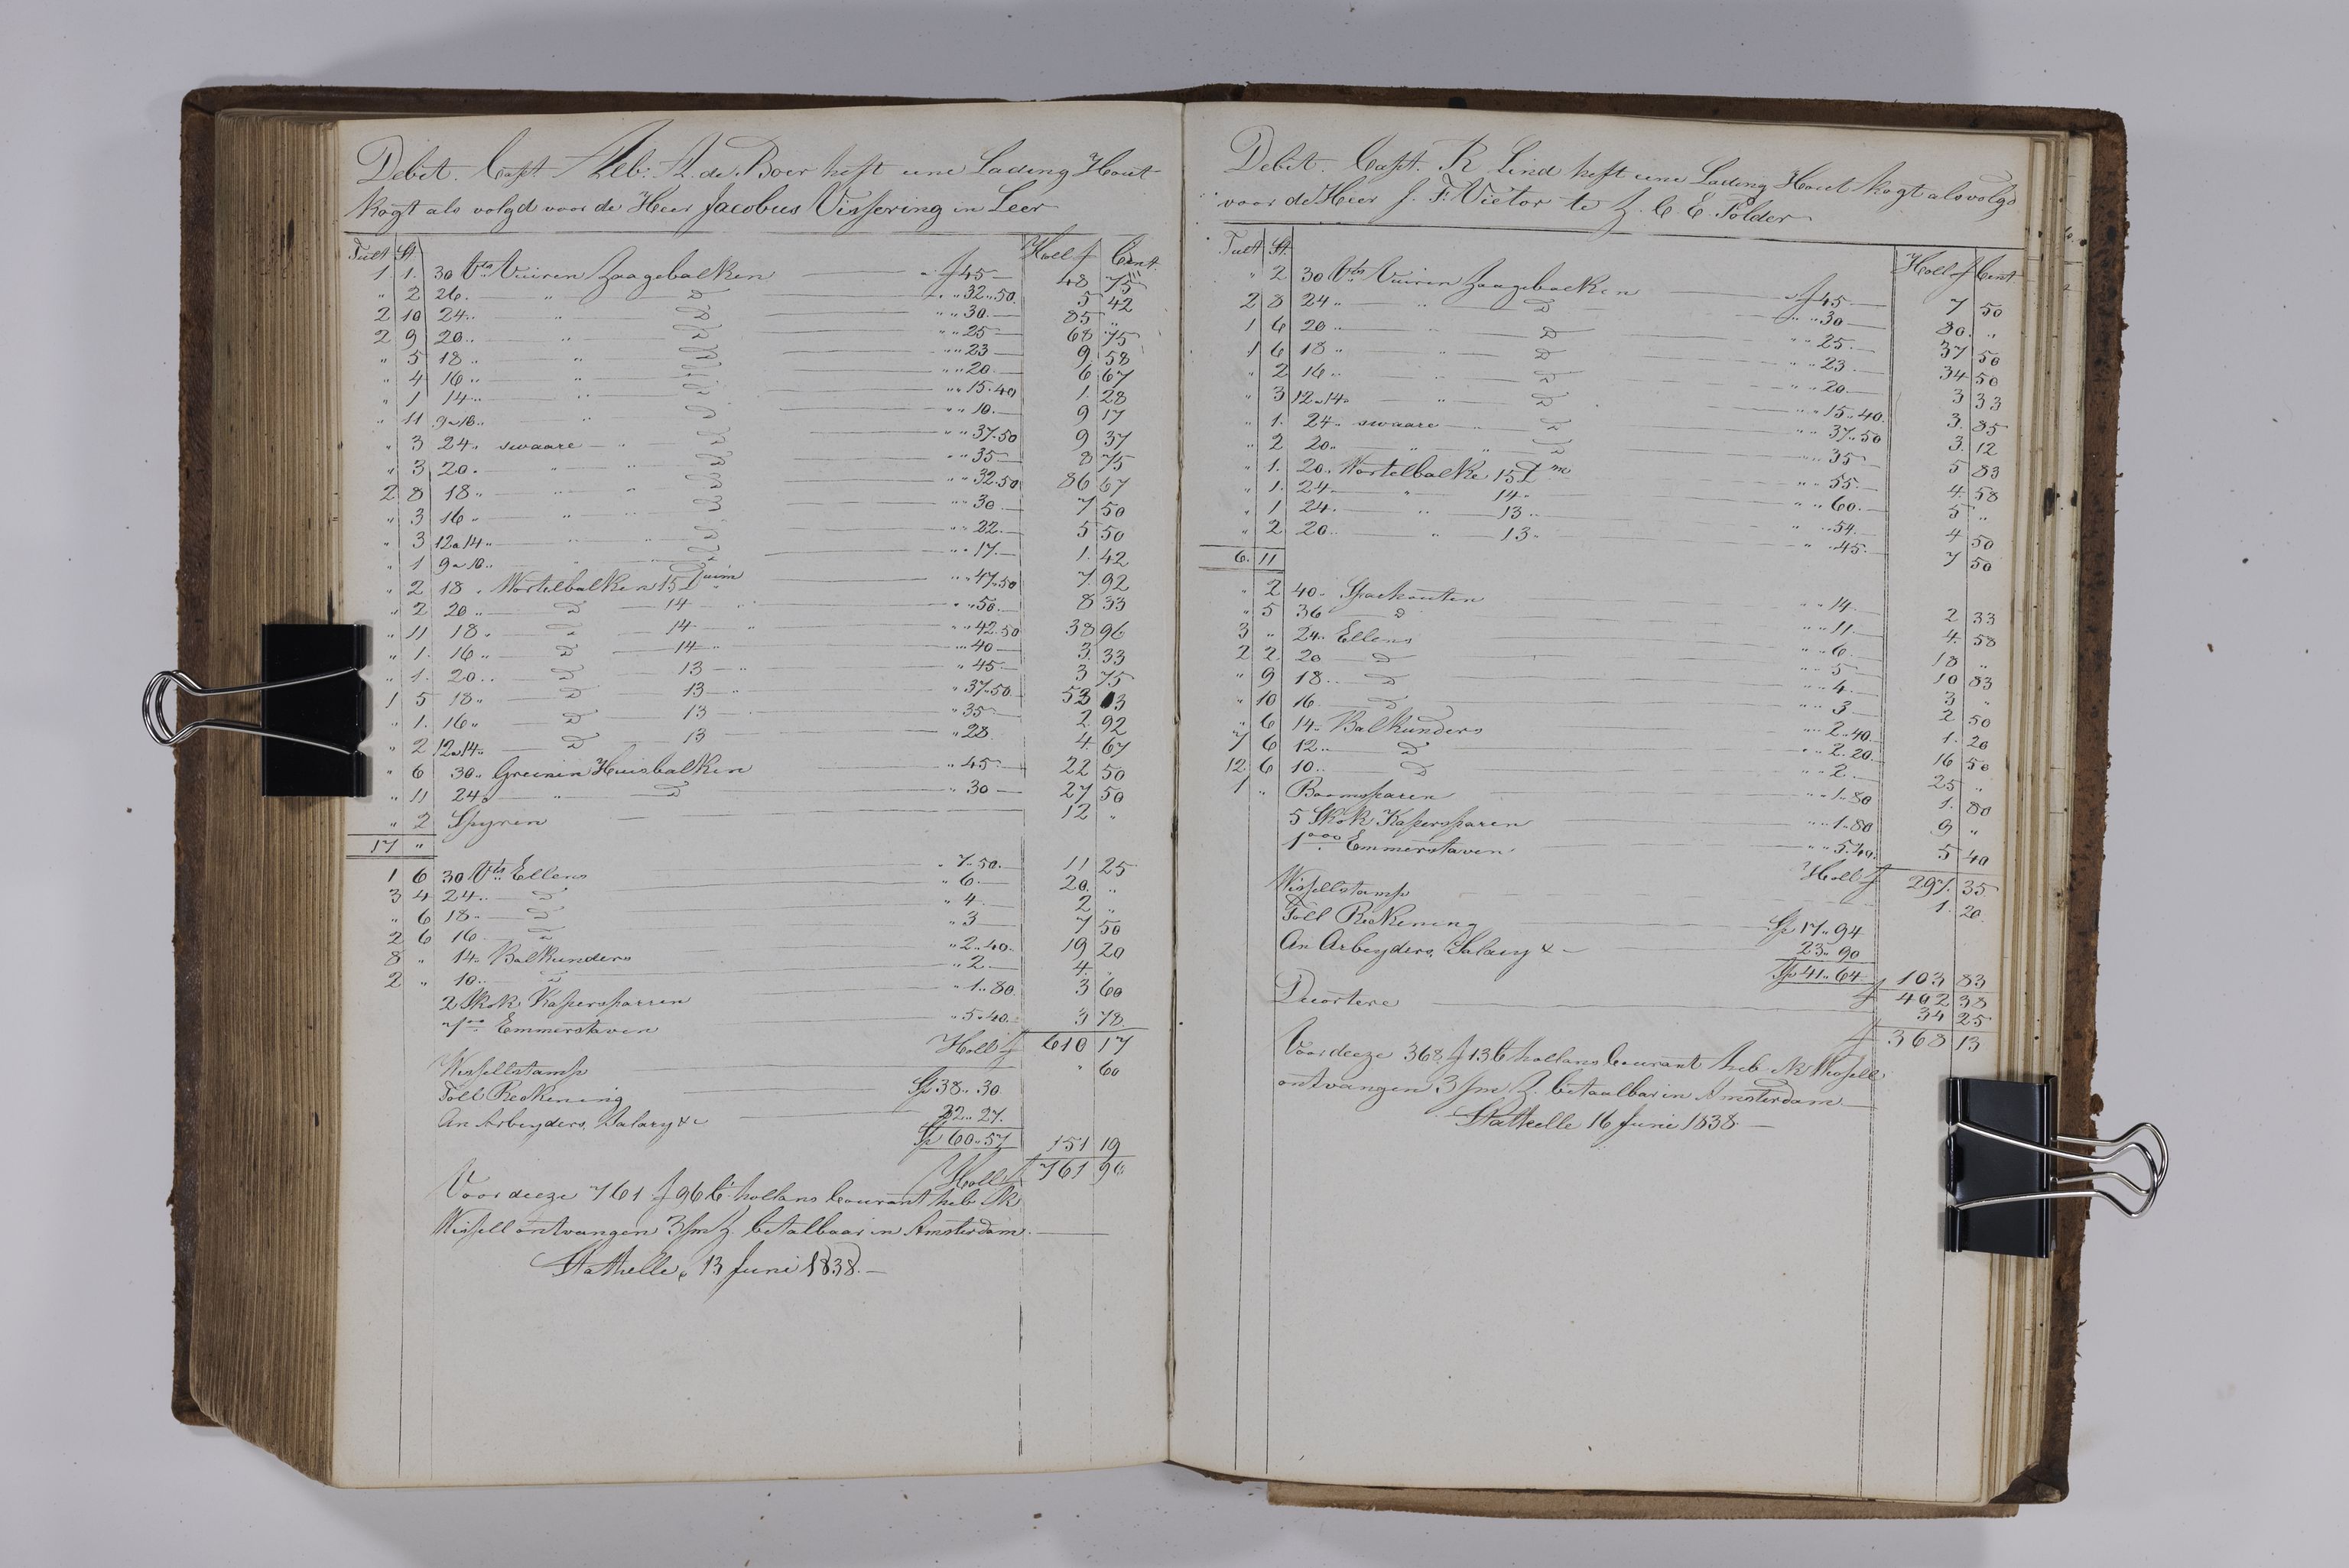 Debit. Capt. Alb: A. de Boer heft eene Lading Hout
kogt als volgd voor de Heer Jacobus Vissering in Leer
Tult St. Holl f Cent.
1 1. 30 Vts Vuiren Zaagebalken " f 45 48 75
" 2 26. " D " " 32 " 50 5 42
2 10 24 " " D " " 30. 85 "
2 9 20 " " D " " 25 68 75
" 5 18 " " D " " 23 9 58
" 4 16 " " D " " 20. 6 67
" 1 14 " " D " " 15 " 40 1. 28
" 11 9 a 10 " " D " " 10. 9 17
" 3 24 " swaare " D " " 37 " 50 9 37
" 3 20. " " D " " 35 8 75
2 8 18 " " " D " " 32 " 50 86 67
" 3 16 " " " D " " 30 7 50
" 3 12 a 14 " " " D " " 22. 5 50
" 1 9 a 10 " " " D " " 17. 1. 42
" 2 18 " Wortelbalken 15 Duim " " 47 " 50 7. 92
" 2 20 " D 14 " " " 50. 8 33
" 11 18 " D 14 " " " 42 " 50 38 96
" 1. 16 " D 14 " " " 40 3. 33
" 1. 20 " D 13 " " 45 3 75
1 5 18 " D 13 " " 37 " 50 53 13
" 1. 16 " D 13 " 35 2. 92
" 2 12 a 14 " D 13 " 28 4. 67
" 6 30 " Greinen Huisbalken " 45 22 50
" 11 24 " " D " 30 27 50
" 2 Spyren 12 "
17 "
1 6 30 Vts Ellens " 7 " 50. 11 25
3 4 24 " D " 6 20. "
" 6 18 " D " 4 2 "
2 6 16 D " 3 7 50
8 " 14 " Balkunders " 2 " 40. 19 20
2 " 10 " D " 2 4. "
2 Skok Kapersparren " 1 " 80. 3 60
700 Emmerstaven " 5 " 40. 3 78
Holl f 610 17
Wissellstamp " 60
Toll Reckening Sp 38 " 30
An Arbeyders, Salary &c 22 " 27.
Sp 60 " 57 151 19
Holl f 761 96
Voor deeze 761 f 96 Ct hollans Courant heb Ik
Wissell ontvangen 3/m Z. betalbaar in Amsterdam.
Stathelle, 13 Juni 1838.
Debit. Capt. R Lind heft eene Lading Hout kogt als volgd
voor de Heer J. F. Victor te Z. C. E. Polder
Tult St. Holl f Cent
" 2 30 Vts Vuiren Zaagebalken " f 45 7 50
2 8 24 " " D " " 30 80. "
1 6 20 " " D " " 25. 37 50
1 6 18 " " D " " 23. 34 50
" 2 16 " " D " " 20. 3 33
" 3 12 a 14 " " D " " 15 " 40. 3. 85
" 1. 24 " swaare " D " " 37 " 50 3. 12
" 2 20 " " " D " " 35 5 83
" 1. 20 " Wortelbalke 15 Dm " " 55. 4. 58
" 1. 24. " 14 " " " 60. 5 "
" 1 24. " 13 " " " 54. 4 50
" 2 20. " 13 " " " 45. 7 50
6. 11
" 2 40 " Sparhouten " " 14. 2 33
" 5 36 D " " 11. 4. 58
3 " 24 " Ellens " " 6 18 "
2 2. 20 D " " 5 10 83
" 9 18 " D " " 4. 3 "
" 10 16. D " " 3 2 50
" 6 14 " Balkunders " " 2 " 40. 1. 20
7 6 12 " D " " 2 " 20. 16 50
12. 6 10 " D " " 2. 25 "
1 " Boomsparen " " 1 " 80 1. 80
5 Skok Kapersparen " " 1 " 80 9 "
1000 Emmerstaven " " 5 " 40. 5 40
Holl f 297. 35
Wissellstamp 1. 20.
Toll Reckening Sp 17 " 94
An Arbeyders, Salary & 23 " 90
Sp 41 " 64 103 83
f 402 38
Decortere 34 25
f 368 13
Voor deeze 368 f 13 C hollans Courant heb Ik Wissell
ontvangen 3/m Z. betaalbar in Amsterdam.
Stathelle 16 Juni 1838.